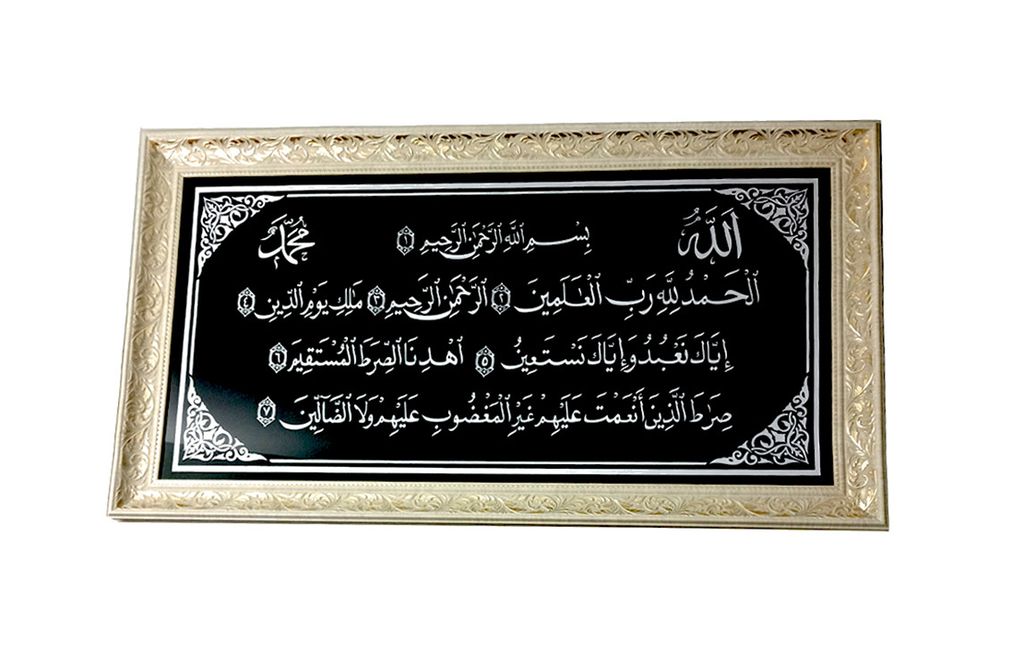 الله بِسْمِ اللَّهِ الرَّحْمَٰنِ الرَّحِيمِ ١ مُحَمَّد
الْحَمْدُ لِلَّهِ رَبِّ الْعَٰلَمِينَ ٢ الرَّحْمَٰنِ الرَّحِيمِ ٣ مَٰلِكِ يَوْمِ الدِّينِ ٤
إِيَّاكَ نَعْبُدُ وَإِيَّاكَ نَسْتَعِينُ ٥ اهْدِنَا الصِّرَٰطَ الْمُسْتَقِيمَ ٦
صِرَٰطَ الَّذِينَ أَنْعَمْتَ عَلَيْهِمْ غَيْرِ الْمَغْضُوبِ عَلَيْهِمْ وَلَا الضَّالِّينَ ٧